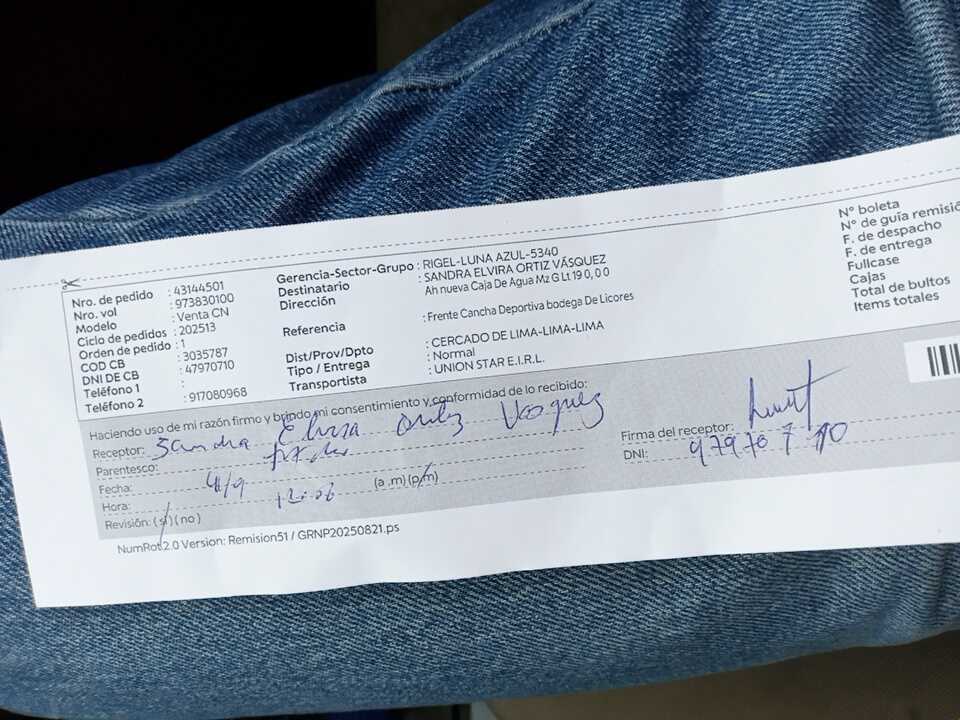 Nro. de pedido : 43144501
Nro. vol : 973830100
Modelo : Venta CN
Ciclo de pedidos : 202513
Orden de pedido : 1
COD CB : 3035787
DNI DE CB : 47970710
Teléfono 1 :
Teléfono 2 : 917080968
Gerencia-Sector-Grupo : RIGEL-LUNA AZUL-5340
Destinatario : SANDRA ELVIRA ORTIZ VÁSQUEZ
Dirección Ah nueva Caja De Agua Mz G Lt 19 0, 0 0
Referencia : Frente Cancha Deportiva bodega De Licores
Dist/Prov/Dpto : CERCADO DE LIMA-LIMA-LIMA
Tipo / Entrega : Normal
Transportista : UNION STAR E.I.R.L.
N° boleta
N° de guía remisió
F. de despacho
F. de entrega
Fullcase
Cajas
Total de bultos
Items totales
Haciendo uso de mi razón firmo y brindo mi consentimiento y conformidad de lo recibido:
Receptor: Sandra Elvira Ortiz Vasquez
Parentesco:
Fecha: 4/9
Hora: 12:06 (a .m) (p/m)
Revisión: (si) (no)
Firma del receptor:
DNI: 97970710
NumRot 2.0 Version: Remision51 / GRNP20250821.ps